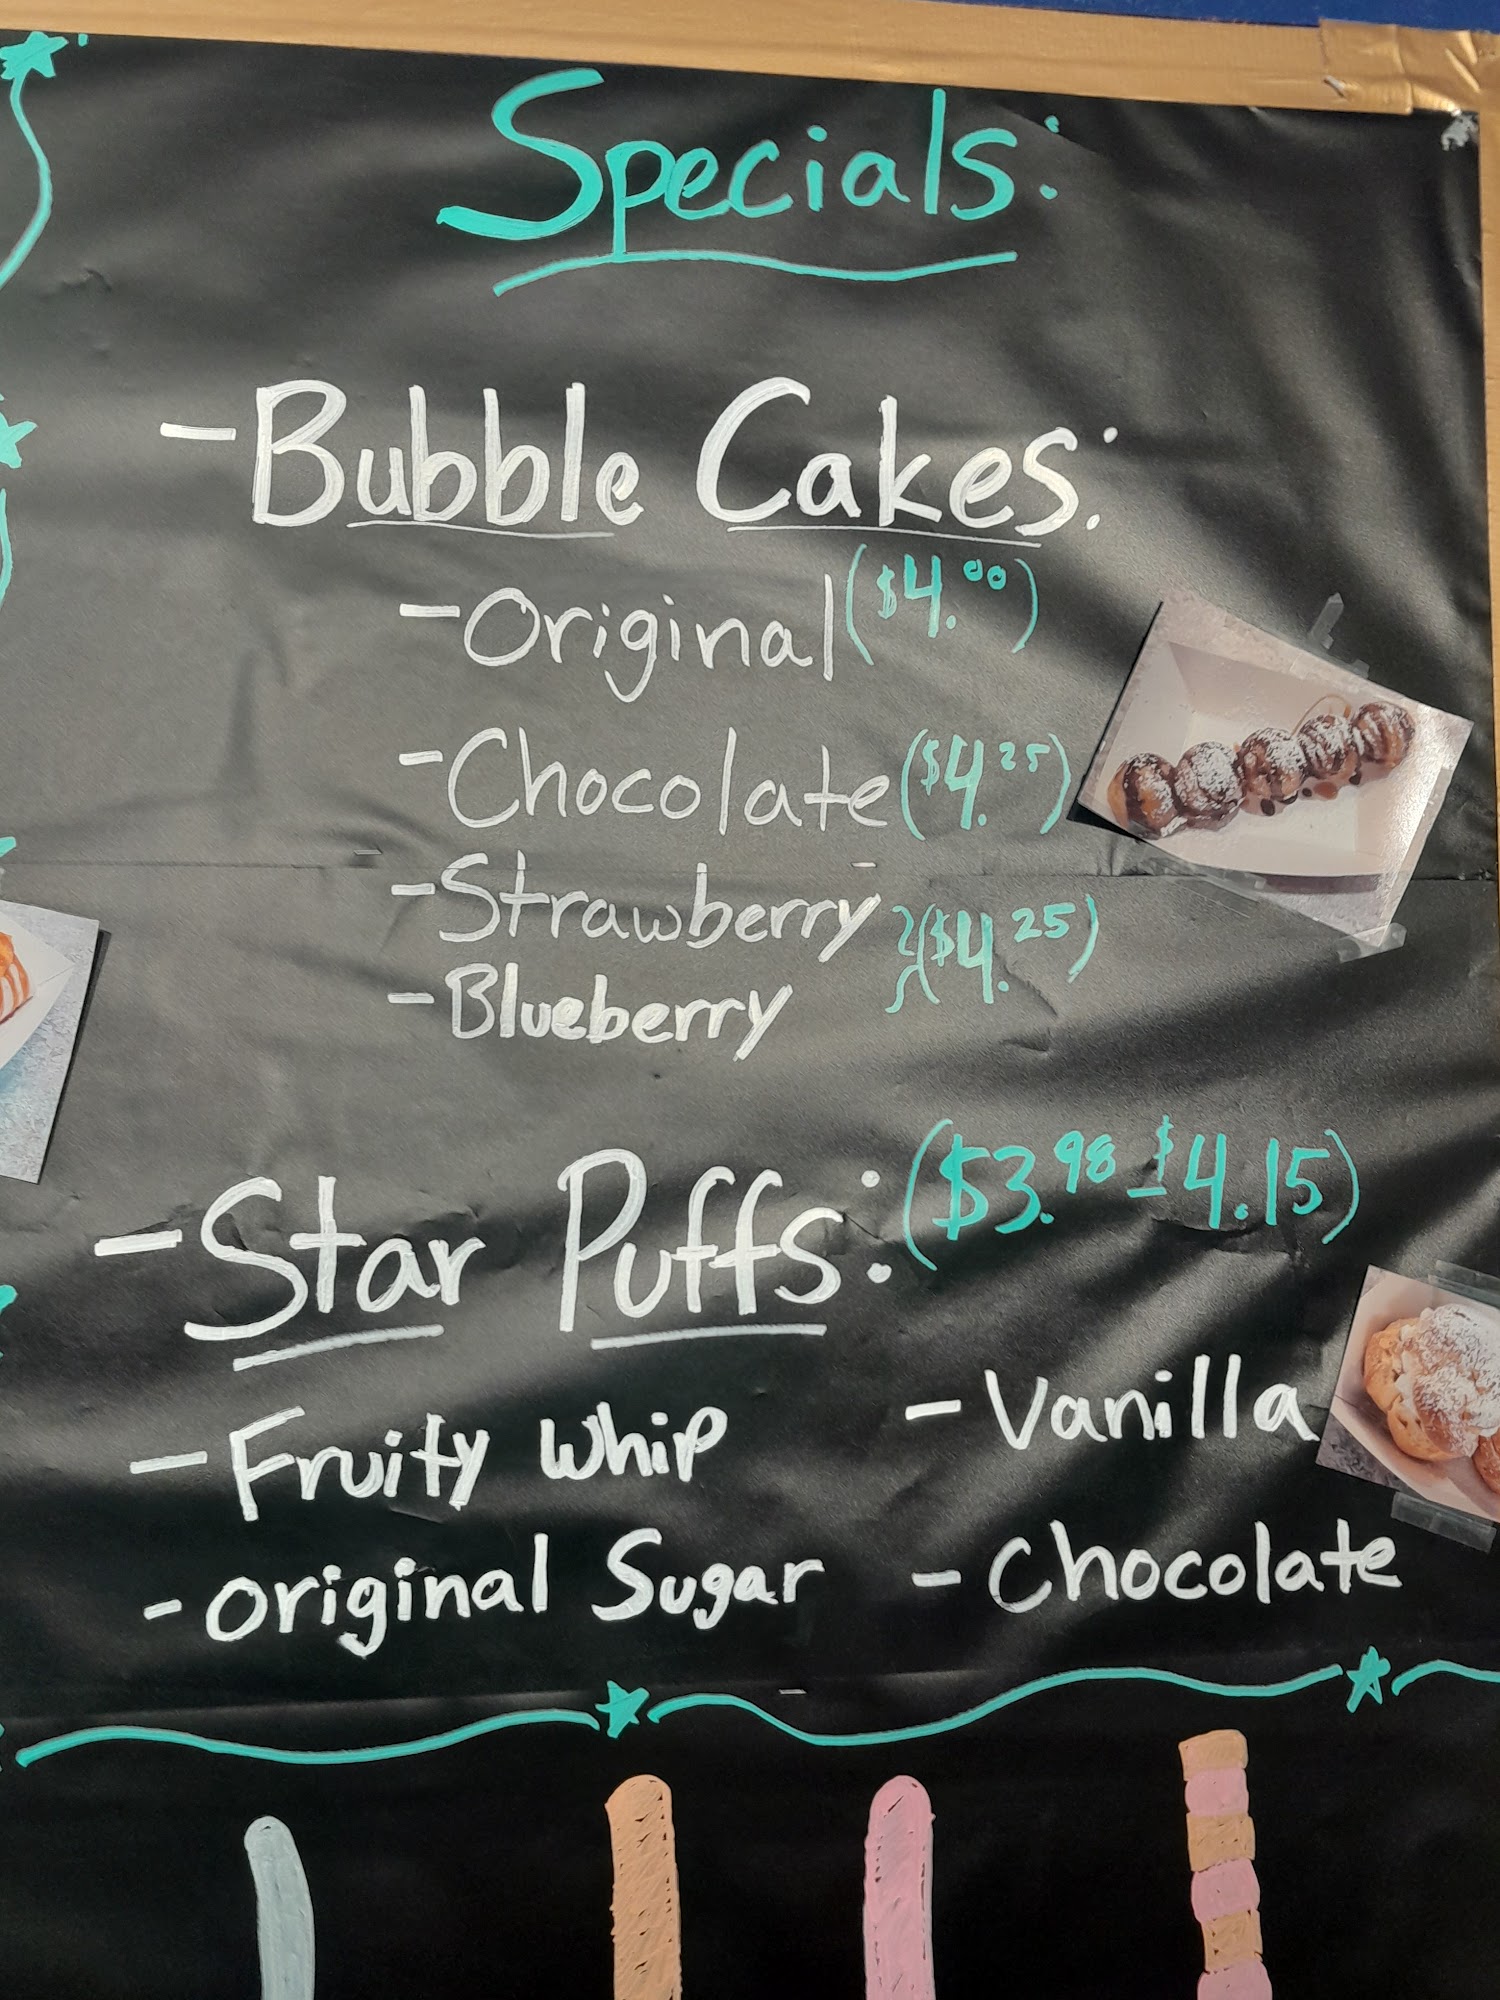 Specials:
-Bubble Cakes:
-Original ($4.00)
-Chocolate ($4.25)
-Strawberry
-Blueberry }($4.25)
-Star Puffs: ($3.98-$4.15)
-Fruity Whip
-Vanilla
-Original Sugar
-Chocolate